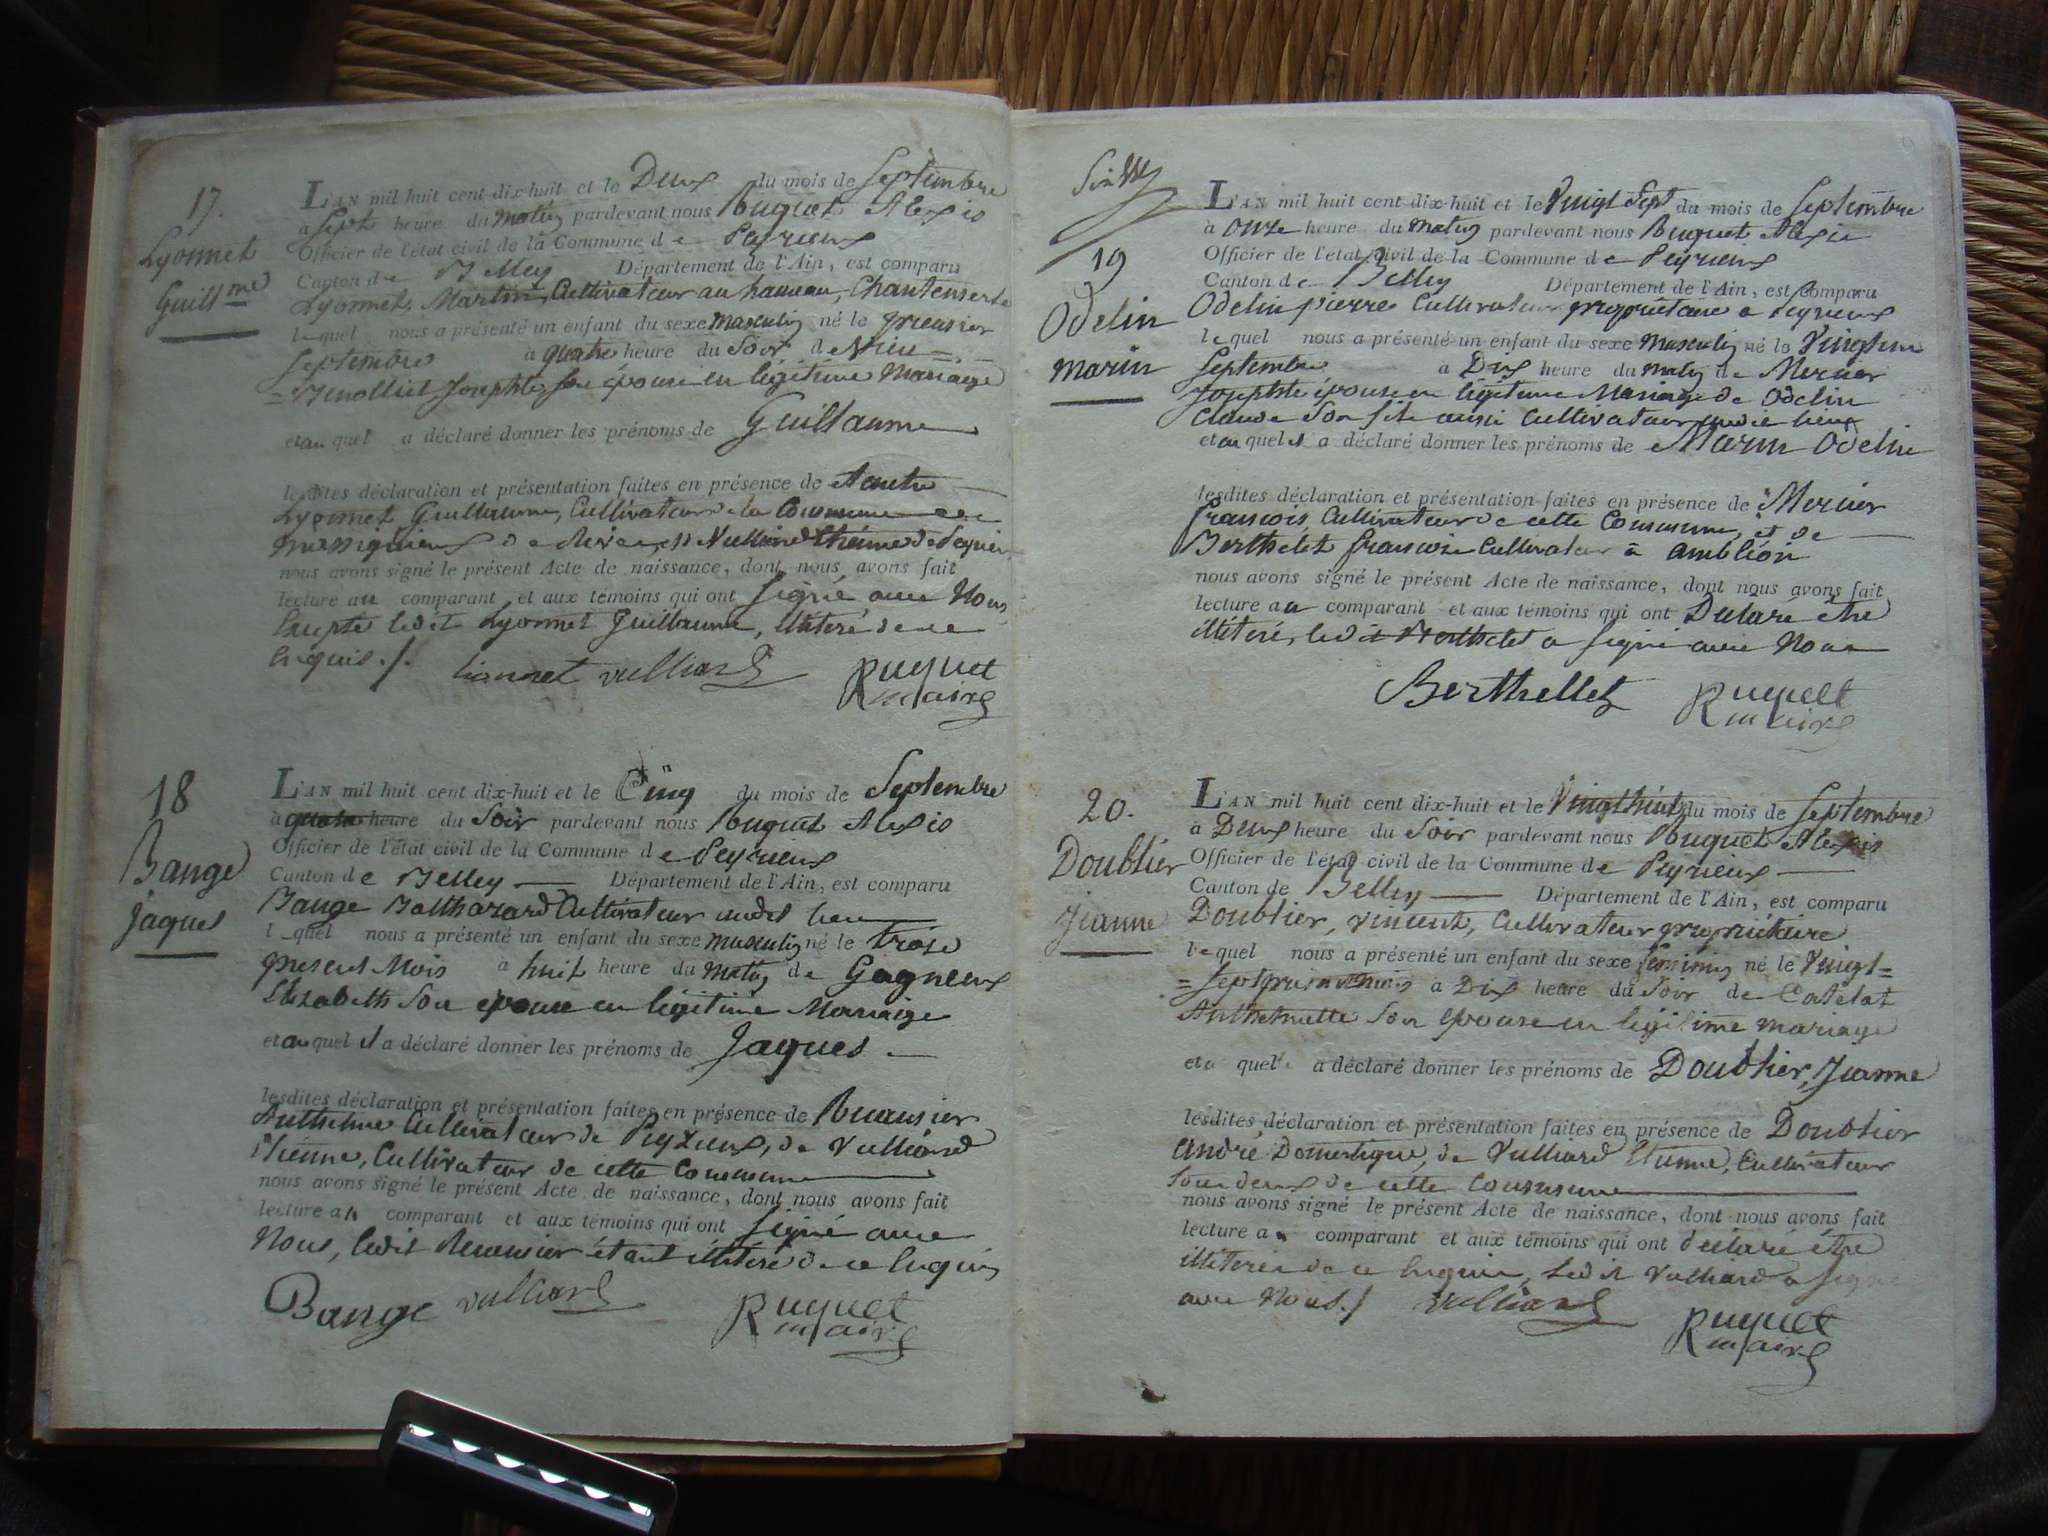 17.
Lyonnet
Guillme
L'AN mil huit cent dix-huit et le Deux du mois de Septembre
à Sept heure du matin pardevant nous Ruquet Alexis
Officier de l'état civil de la Commune de Peyrieux
Canton de Belley Département de l'Ain, est comparu
Lyonnet, Martin, Cultivateur au hameau, Chantemerle
lequel nous a présenté un enfant du sexe masculin né le premier
Septembre à quatre heure du Soir de
Josephte Son épouse en légitime Mariage
et au quel a déclaré donner les prénoms de Guillaume
lesdites déclaration et présentation faites en présence de
Lyonnet Guillaume, Cultivateur de la Commune de
de Peyrieux
nous avons signé le présent Acte de naissance, dont nous avons fait
lecture au comparant et aux témoins qui ont Signé avec Nous
Excepté ledit Lyonnet Guillaume, illitéré de ce
Enquis ./.
Lionnet vulliard Ruquet
maire
18
Bange
Jaques
L'AN mil huit cent dix-huit et le Cinq du mois de Septembre
à quatre heure du Soir pardevant nous Ruquet Alexis
Officier de l'état civil de la Commune de Peyrieux
Canton de Belley Département de l'Ain, est comparu
Bange Balthazard Cultivateur audit lieu
lequel nous a présenté un enfant du sexe masculin né le trois
present Mois à huit heure du Matin de Gagneux
Elizabeth Son épouse en légitime Mariage
et au quel il a déclaré donner les prénoms de Jaques
lesdites déclaration et présentation faites en présence de
Anthelme Cultivateur de Peyrieux, de Vulliard
Etienne, Cultivateur de cette Commune
nous avons signé le présent Acte de naissance, dont nous avons fait
lecture au comparant et aux témoins qui ont Signé avec
Nous, ledit étant illitéré de ce Enquis
Bange vulliard Ruquet
maire
19
Odelin
marin
L'AN mil huit cent dix-huit et le Vingt Sept du mois de Septembre
à onze heure du matin pardevant nous Ruquet Alexis
Officier de l'état civil de la Commune de Peyrieux
Canton de Belley Département de l'Ain, est comparu
Odelin pierre Cultivateur propriétaire a Peyrieux
lequel nous a présenté un enfant du sexe Masculin né le
Septembre à Dix heure du matin de Mercier
Josephte épouse en légitime Mariage de Odelin
Claude Son fils aussi Cultivateur audit lieu
et au quel il a déclaré donner les prénoms de Marin Odelin
lesdites déclaration et présentation faites en présence de Mercier
françois Cultivateur de cette Commune, et de
Berthelet françois Cultivateur à ambléon
nous avons signé le présent Acte de naissance, dont nous avons fait
lecture au comparant et aux témoins qui ont Déclaré être
illitéré, ledit Berthelet a signé avec Nous
Berthellet Ruquet
maire
20.
Doublier
Jeanne
L'AN mil huit cent dix-huit et le Vingt huit du mois de Septembre
à Deux heure du Soir pardevant nous Ruquet Alexis
Officier de l'état civil de la Commune de Peyrieux
Canton de Belley Département de l'Ain, est comparu
Doublier, Vincent, Cultivateur propriétaire
lequel nous a présenté un enfant du sexe feminin né le Vingt=
=Sept présent Mois à Dix heure du Soir de Catelat
Anthelmette Son épouse en légitime mariage
et a quel a déclaré donner les prénoms de Doublier, Jeanne
lesdites déclaration et présentation faites en présence de Doublier
André Domestique, de Vulliard Etienne, Cultivateur
Tous deux de cette Commune
nous avons signé le présent Acte de naissance, dont nous avons fait
lecture au comparant et aux témoins qui ont déclaré être
illiterés de ce Enquis, ledit Vulliard a signé
avec Nous ./ vulliard Ruquet
maire